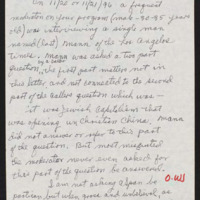 On 11/20 or 11/21/94 a frequent
moderator on your program (male - 30-35 years
old) was interviewing a single man
named (last) Mann, of the Los Angeles
Times. Mann was asked a two part
by a caller
question, the first part matters not in
this letter, and not connected to the second
part of the caller's question which was -
it was Jewish Capitalism that
was opening up Christian China. Mann
did not answer or refer to this part
of the question. But, most misguided
the moderator never even asked for
this part of the question be answered.
O-WS
I am not asking Cspan be
partisan but when gross and